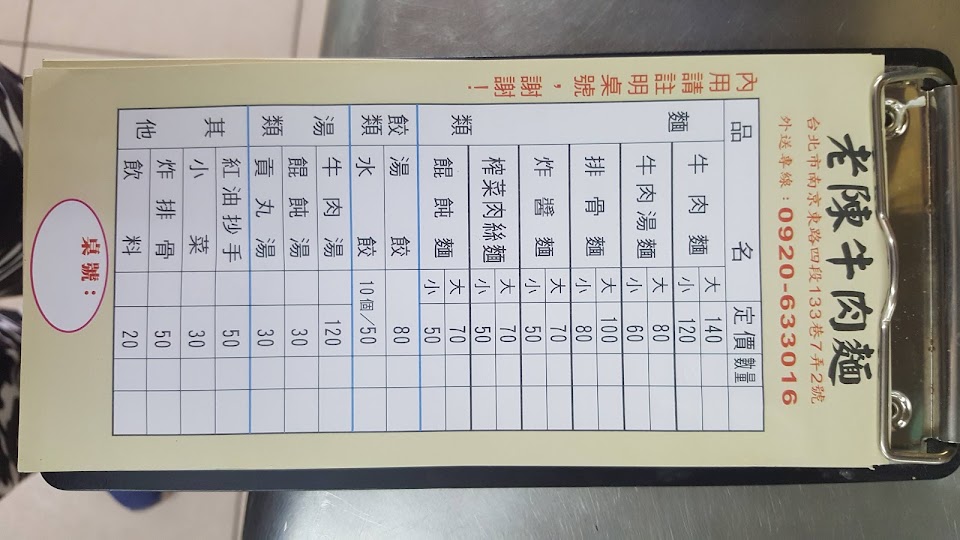 老陳牛肉麵
台北市南京東路四段133巷7弄2號
外送專線：0920-633016
內用請註明桌號，謝謝！
品名 定價 數量
麵類
牛肉麵 大 140
小 120
牛肉湯麵 大 80
小 60
排骨麵 大 100
小 80
炸醬麵 大 70
小 50
榨菜肉絲麵 大 70
小 50
餛飩麵 大 70
小 50
餃類
湯餃 80
水餃 10個/50
湯類
牛肉湯 120
餛飩湯 30
貢丸湯 30
其他
紅油抄手 50
小菜 30
炸排骨 50
飲料 20
桌號：